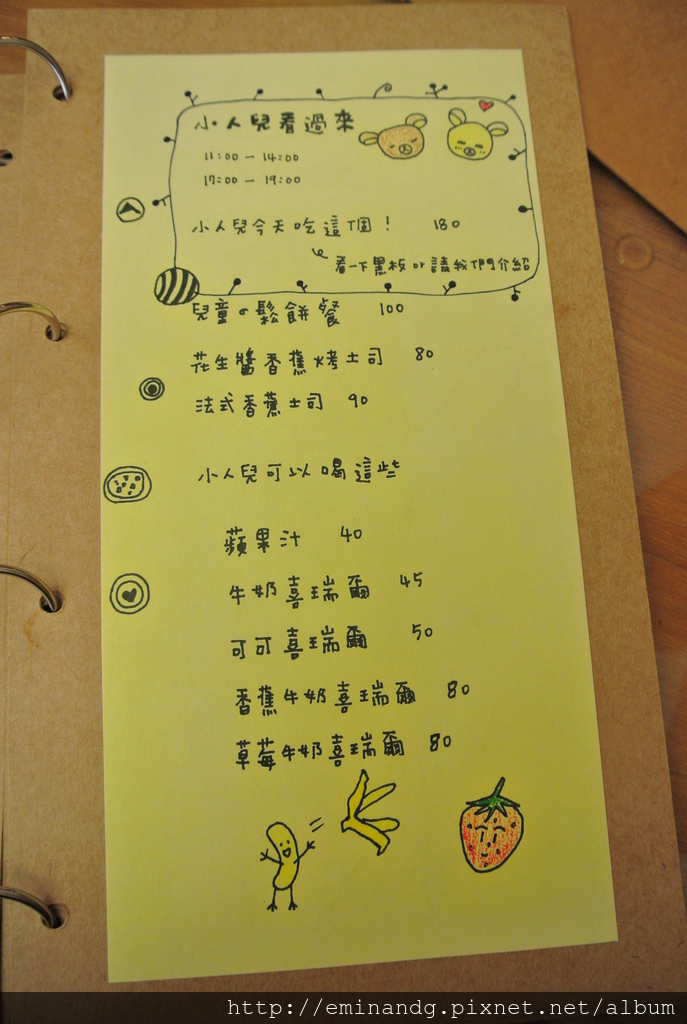 小人兒看過來
11:00 - 14:00
17:00 - 19:00
小人兒今天吃這個！ 180
看一下黑板 or 請我們介紹
兒童の鬆餅餐 100
花生醬香蕉烤土司 80
法式香蕉土司 90
小人兒可以喝這些
蘋果汁 40
牛奶喜瑞爾 45
可可喜瑞爾 50
香蕉牛奶喜瑞爾 80
草莓牛奶喜瑞爾 80
http://eminandg.pixnet.net/album